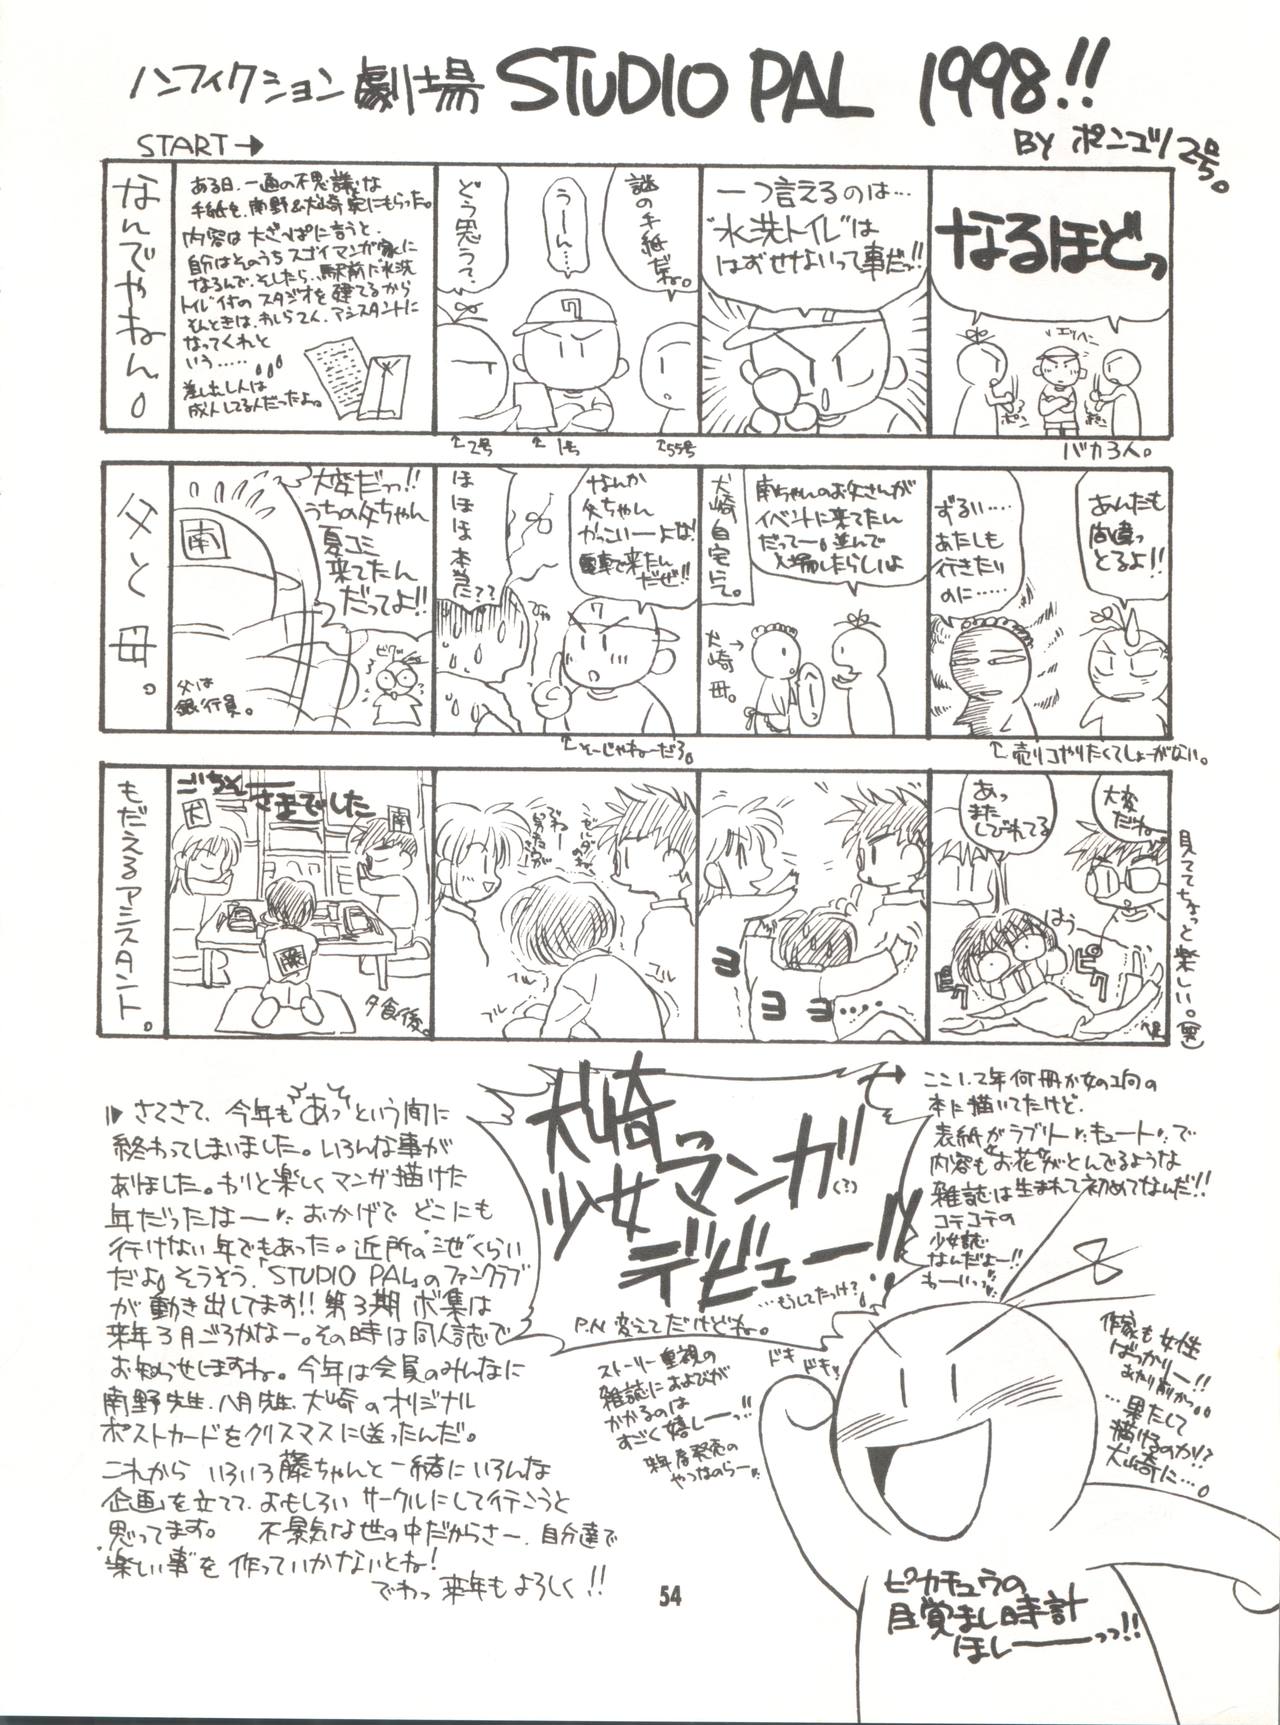 ノンフィクション劇場 STUDIO PAL 1998!!
BY ポンコツ2号。
START→
なんでやねん。
ある日、一通の不思議な
手紙を、南野&犬崎家にもらった。
内容は大ざっぱに言うと、
自分はそのうちスゴイマンガ家に
なるんで、そしたら、駅前に水洗
トイレ付のスタジオを建てるから
そんときは、わしらてん、アシスタントに
なってくれと
いう……
差し出し人は
成人してる人だったよ。
謎の手紙だね。
うーん…
どう思うて、
↑2号
↑1号
↑55号
一つ言えるのは…
"水洗トイレ"は
はずせないって事だっ!!
なるほどっ
エッヘン
バカ3人。
父と母。
南
大変だっ!!
うちの父ちゃん
夏コミ
来てたん
だってよ!!
ビクッ
父は
銀行員。
なんか
父ちゃん
がっこいーよな!
電車で来たん
だぜ!!
ほほほ本当だ??
↑そーじゃねーだろ。
犬崎自宅にて。
南ちゃんのお父さんが
イベントに来てたん
だってー。並んで
入場したらしいよ
犬崎母。→
あんたも
間違っ
とるよ!!
ずるい……
あたしも
行きたい
のに……
↑売りコやりたくてしょーがない。
もだえるアシスタント。
ごちそーさまでした
犬
南
藤
夕食後。
ブル
ブル
ヨ
ヨ ヨ…
大変
だね
あっ
また
しびれてる
はう
見ててちょっと楽しい。(笑)
さてさて、今年も"あっ"という間に
終わってしまいました。いろんな事が
ありました。わりと楽しくマンガ描けた
年だったなー。おかげでどこにも
行けない年でもあった。近所の池くらい
だよ。そうそう、「STUDIO PAL」のファンクラブ
が動き出してます!! 第3期ボ集は
来年3月ごろかなー。その時は同人誌で
お知らせしますね。今年は会員のみんなに
南野先生、八月先生、犬崎のオリジナル
ポストカードをクリスマスに送ったんだ。
これから いろいろ藤ちゃんと一緒にいろんな
企画を立てて、おもしろいサークルにして行こうと
思ってます。 不景気な世の中だからさー、自分達で
楽しい事を作っていかないとね!
でわっ来年もよろしく!!
犬崎
少女マンガ(?)
デビュー!!
…もうしてたっけ?
P.N 変えてだけどね。
→ここ1、2年何冊か女の子向の
本に描いてたけど、
表紙がラブリー キュートで
内容も"お花"がとんでるような
雑誌は生まれて初めてなんだ!!
コテコテの
少女誌
なんだよー!!
わーいっっ
ドキ
ドキッ
ストーリー重視の
雑誌におよびが
かかるのは
すごく嬉しーっ!!
来年春発売の
やつなのらー
作家も女性
ばっかりー!!
あたり前かっ
…果たして
描けるのか!?
犬崎に…。
ピカチュウの
目覚まし時計
ほしーーーっっ!!
54